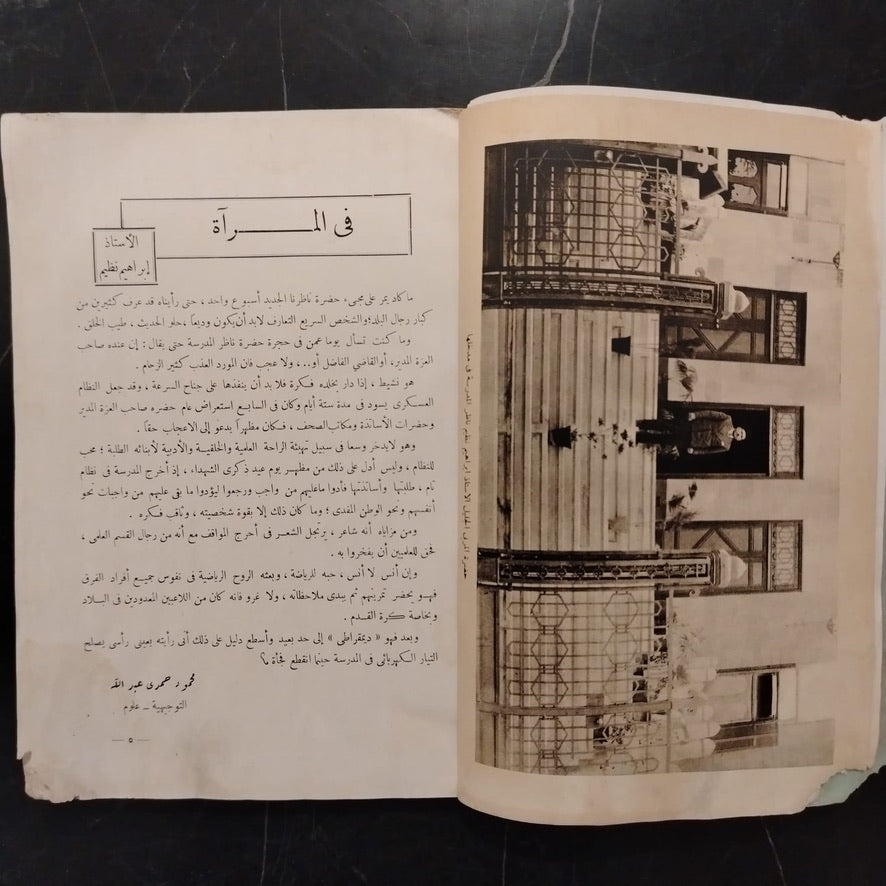 فى المـــــــرآة
الأستاذ
إبراهيم نظيم
ما كاد يمر على مجىء حضرة ناظرنا الجديد أسبوع واحد ، حتى رأيناه قد عرف كثيرين من
كبار رجال البلد؛ والشخص السريع التعارف لابد أن يكون وديعا ، حلو الحديث ، طيب الخلق .
وما كنت تسأل يوما عمن فى حجرة حضرة ناظر المدرسة حتى يقال : إن عنده صاحب
العزة المدير، أو القاضى الفاضل أو.. ، ولا عجب فان المورد العذب كثير الزحام .
هو نشيط ، إذا دار بخلده فكرة فلا بد أن ينفذها على جناح السرعة ، وقد جعل النظام
العسكرى يسود فى مدة ستة أيام وكان فى السابع استعراض عام حضره صاحب العزة المدير
وحضرات الأساتذة ومكاتب الصحف ، فكان مظهراً يدعو إلى الاعجاب حقاً .
وهو لا يدخر وسعا فى سبيل تهيئة الراحة العلمية والخلقية والأدبية لأبنائه الطلبة ؛ محب
للنظام ، وليس أدل على ذلك من مظهر يوم عيد ذكرى الشهداء ، إذ أخرج المدرسة فى نظام
تام ، طلبتها وأساتذتها فأدوا ماعليهم من واجب ورجعوا ليؤدوا ما بقى عليهم من واجبات نحو
أنفسهم ونحو الوطن المفدى ؛ وما كان ذلك إلا بقوة شخصيته ، وثاقب فكره .
ومن مزاياه أنه شاعر ، يرتجل الشعر فى أحرج المواقف مع أنه من رجال القسم العلمى ،
فحق للعلميين أن يفخروا به .
وإن أنس لا أنس ، حبه للرياضة ، وبعثه الروح الرياضية فى نفوس جميع أفراد الفرق
فهو يحضر تمرينهم ثم يبدى ملاحظاته ، ولا غرو فانه كان من اللاعبين المعدودين فى البلاد
وبخاصة كرة القدم .
وبعد فهو « ديمقراطى » إلى حد بعيد وأسطع دليل على ذلك أنى رأيته بعينى رأسى يصلح
التيار الكهربائى فى المدرسة حينما انقطع فجأة
محمود حمدى عبد الله
التوجيهية ــ علوم
— ٥ —
حضرة المربى الجليل الأستاذ إبراهيم نظيم ناظر المدرسة فى مدخلها